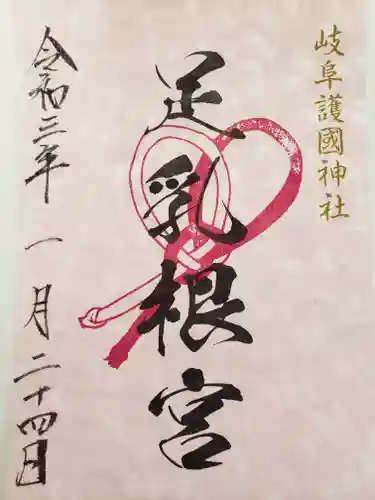 岐阜護國神社
足乳根宮
令和三年一月二十四日